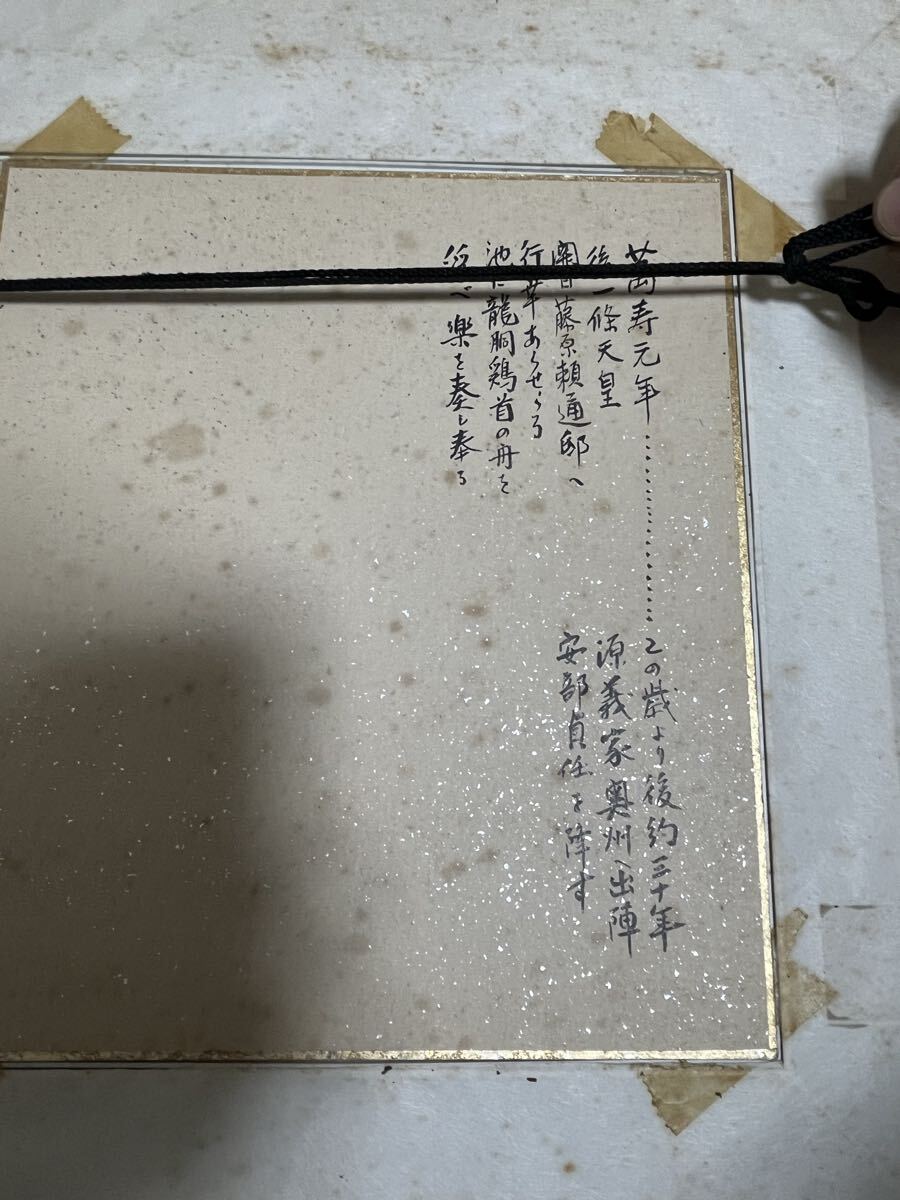 萬寿元年………………この歳より後約三十年
後一條天皇
源義家奥州へ出陣
関白藤原頼通邸へ
安部貞任を降す
行幸あらせらる
池に龍胴鶏首の舟を
べ楽を奏し奉る